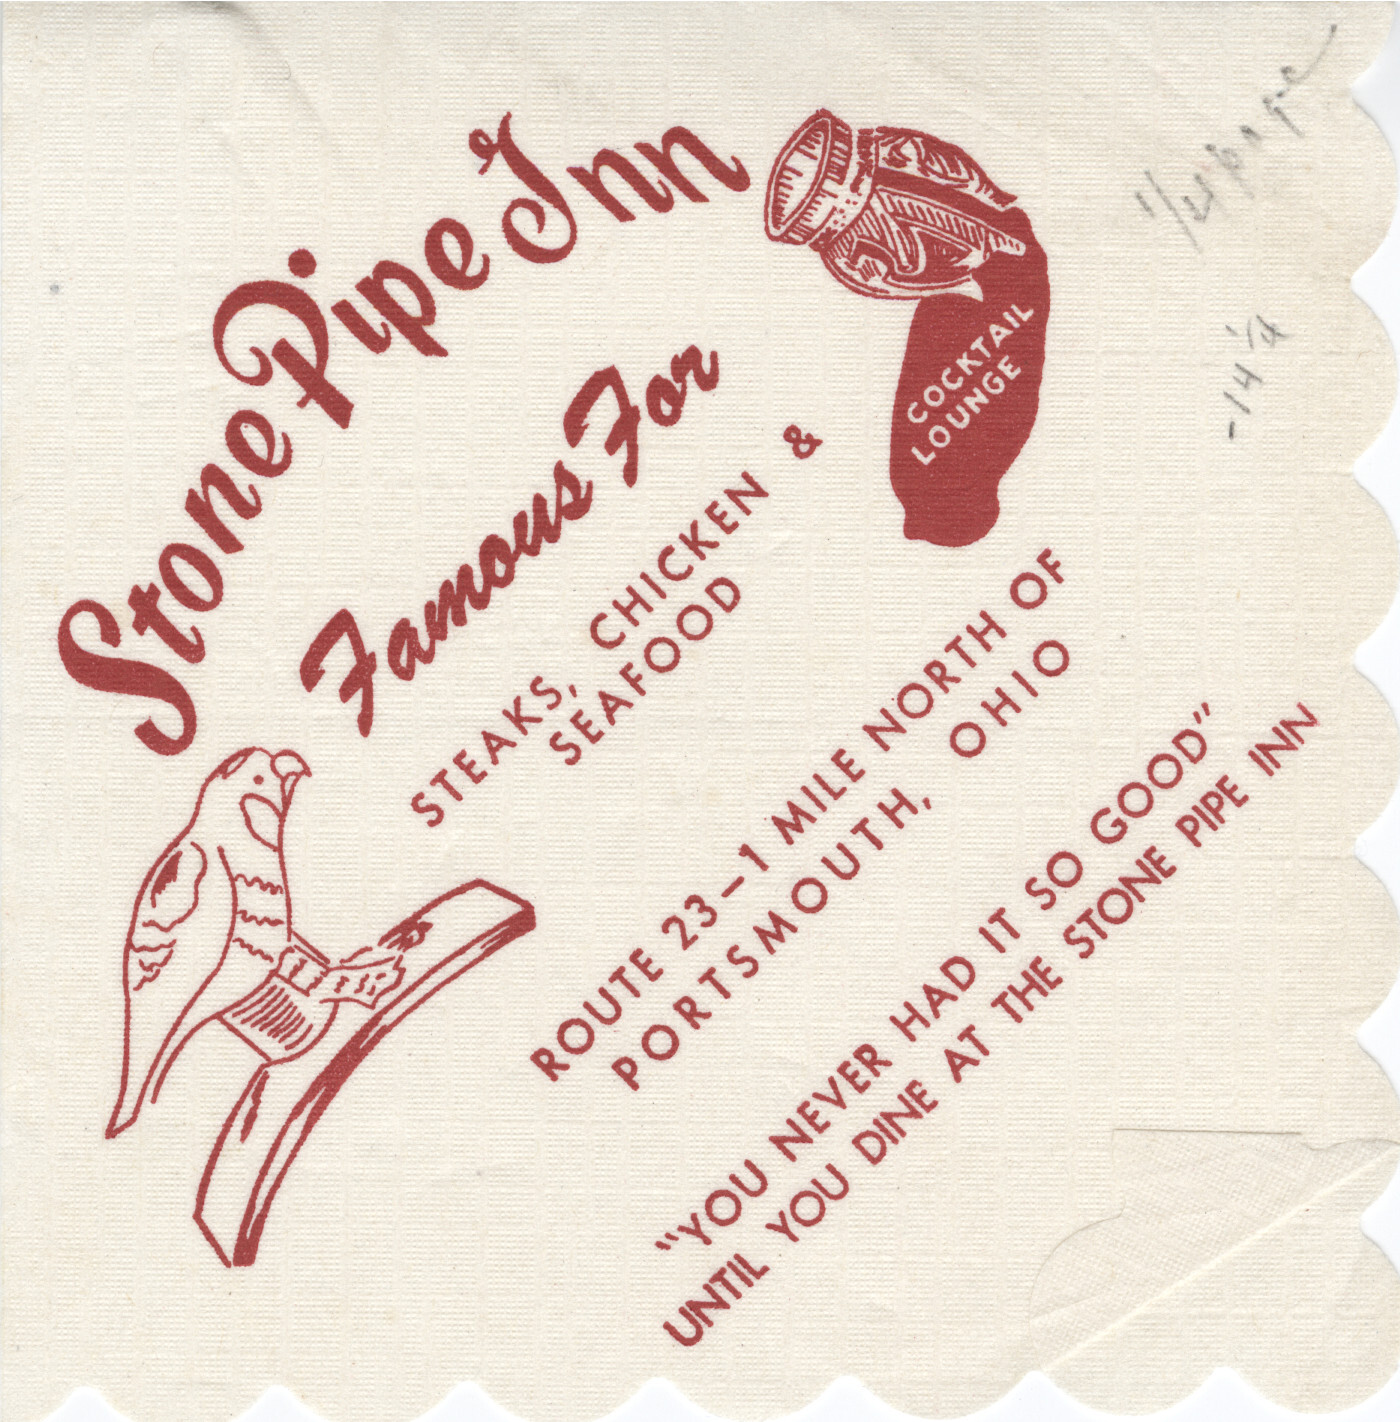 Stone Pipe Inn
Famous For
STEAKS, CHICKEN &
SEAFOOD
COCKTAIL
LOUNGE
ROUTE 23–1 MILE NORTH OF
PORTSMOUTH, OHIO
"YOU NEVER HAD IT SO GOOD"
UNTIL YOU DINE AT THE STONE PIPE INN
1/4 page
-14 1/2